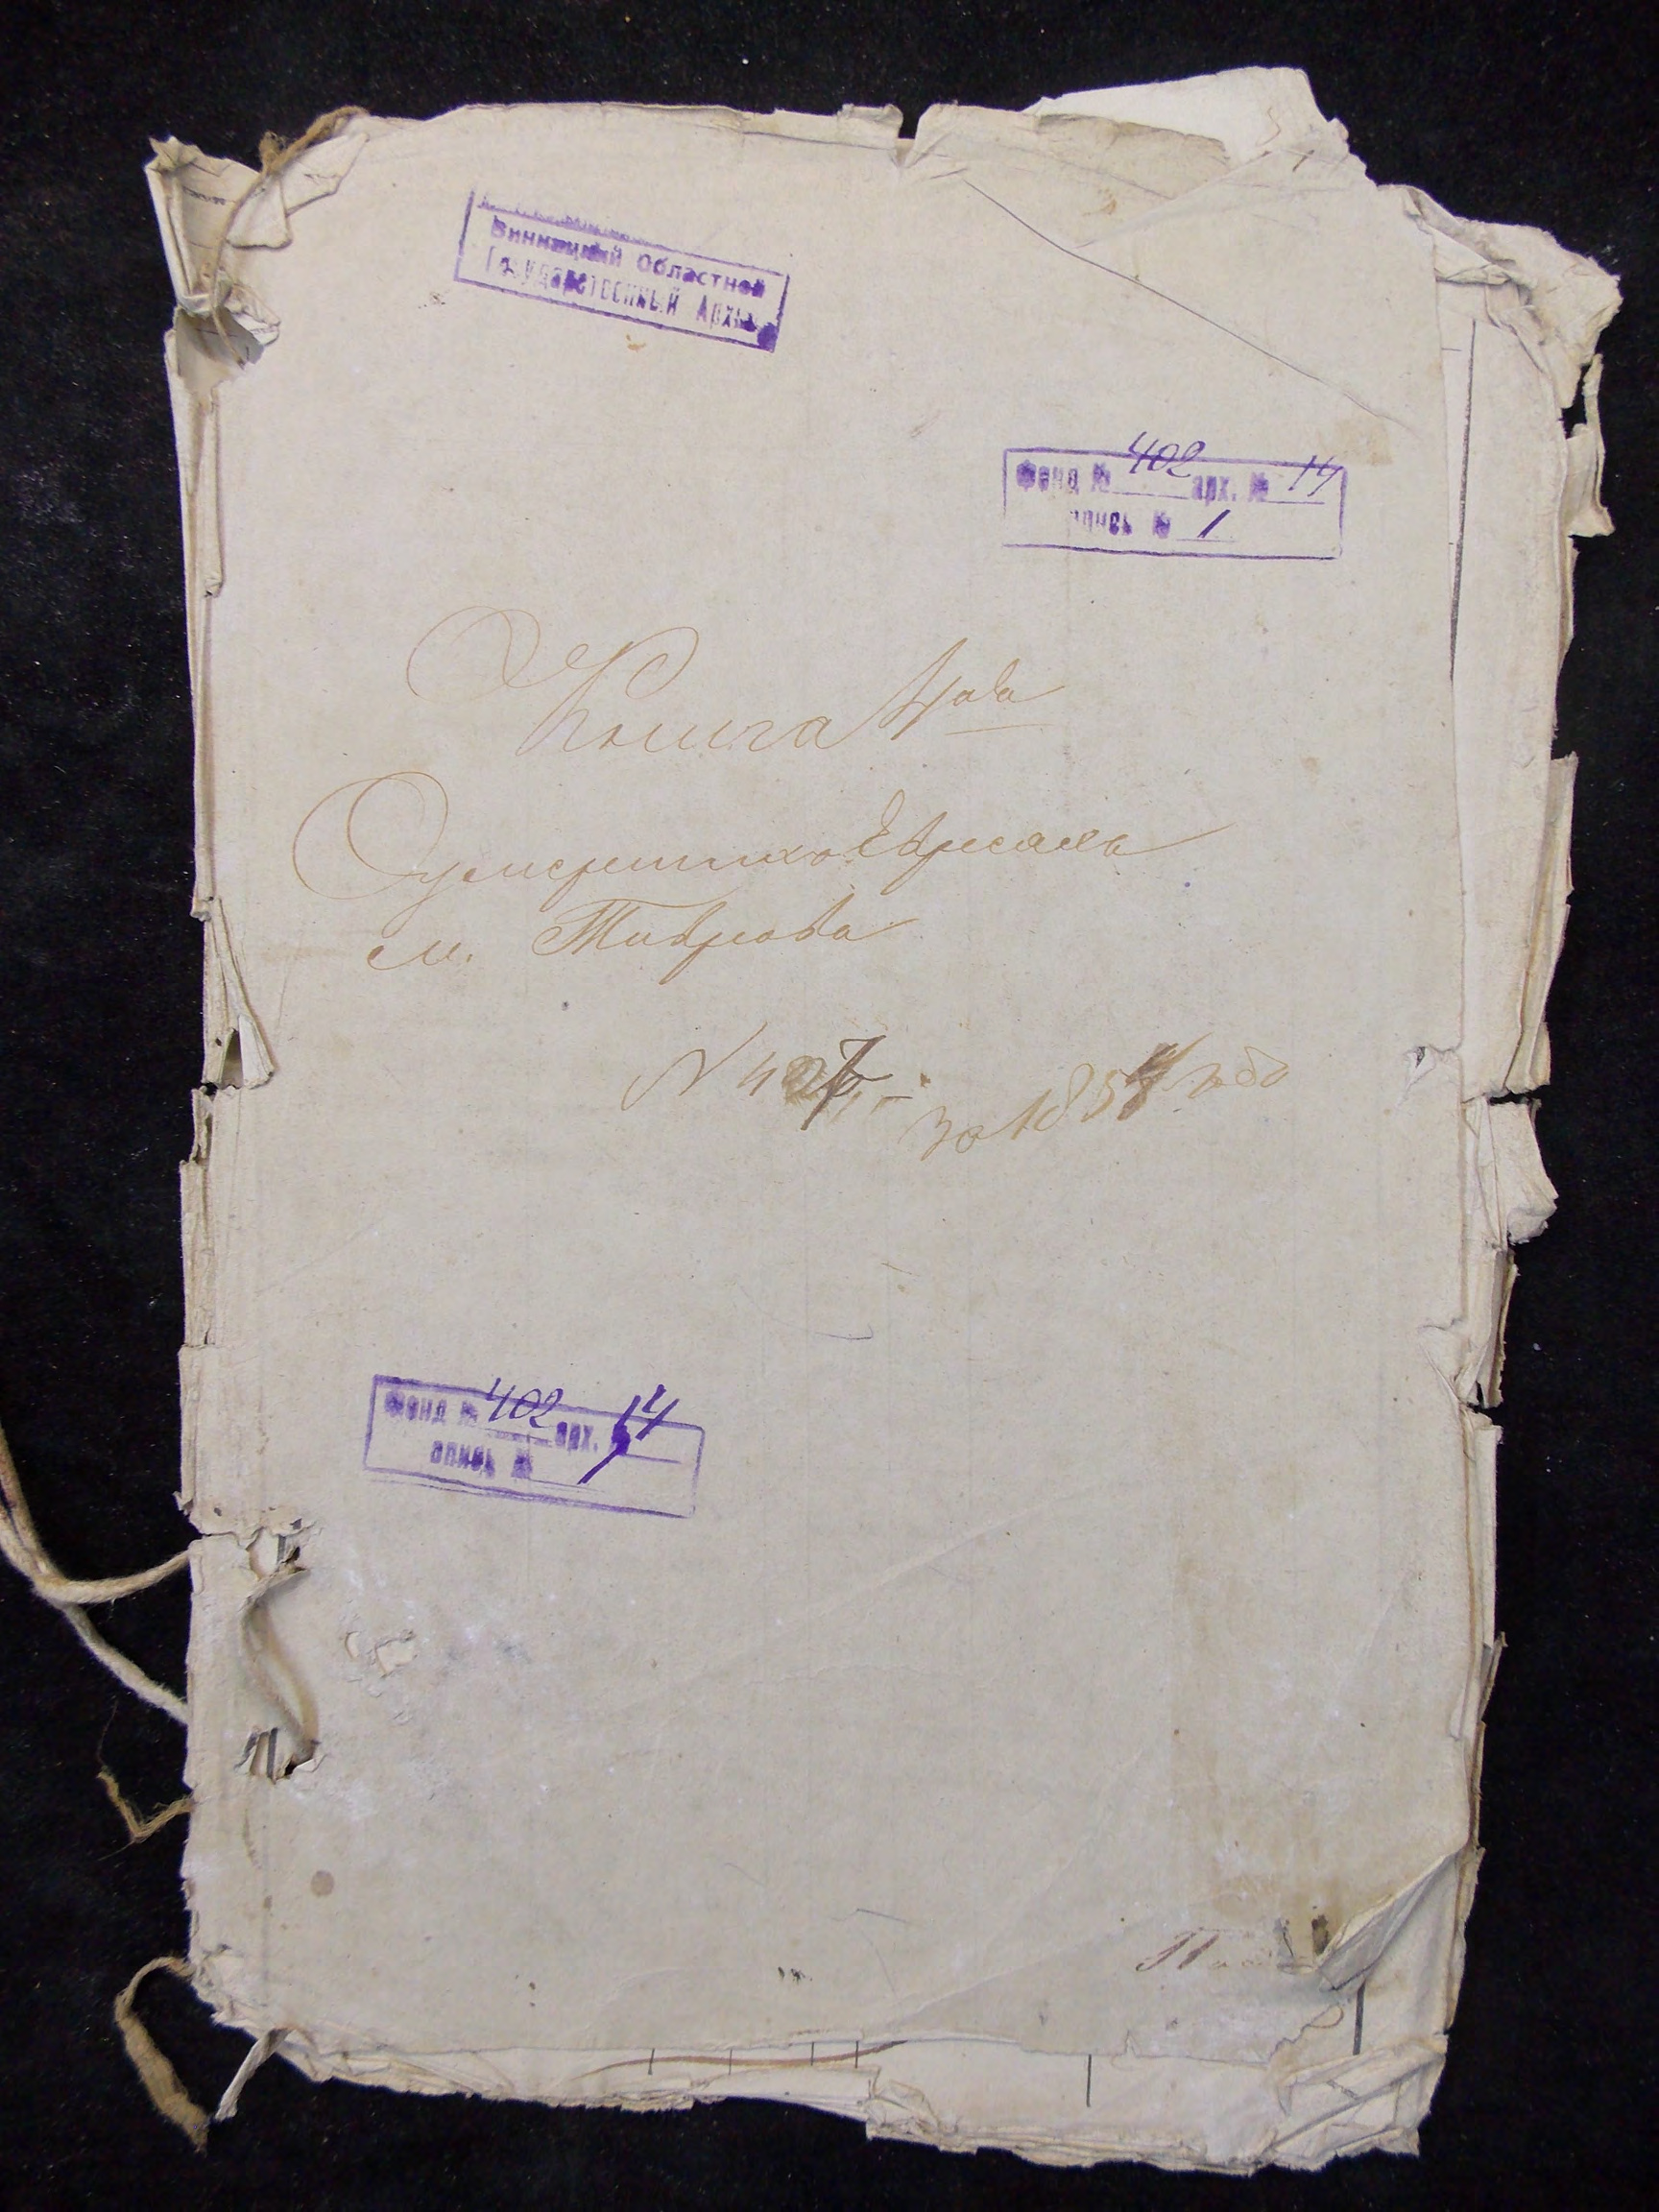 Винницкий Областной
Государственный Архив
Фонд № 402 арх. № 14
опись № 1
Книга
О умершихъ Евреяхъ
м. Тиврова
N 427
за 1854 годъ
Фонд № 402 арх. 14
опись № 1